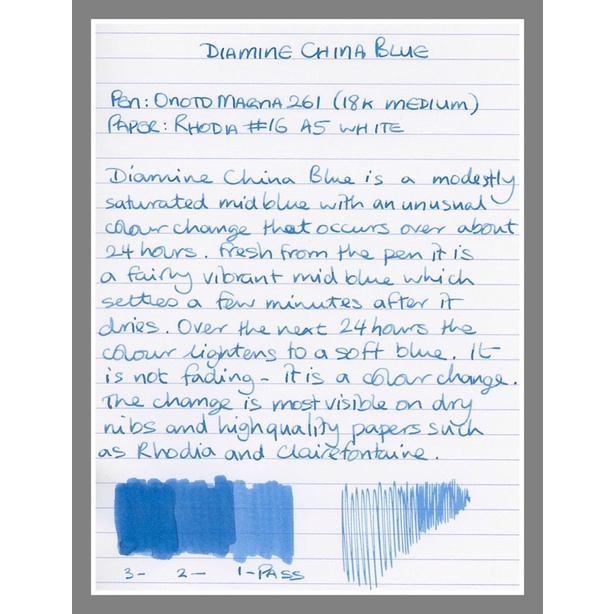 DIAMINE CHINA BLUE
PEN: ONOTO MAGNA 261 (18K MEDIUM)
PAPER: RHODIA #16 A5 WHITE
Diamine China Blue is a modestly
saturated mid blue with an unusual
colour change that occurs over about
24 hours. Fresh from the pen it is
a fairly vibrant mid blue which
settles a few minutes after it
dries. Over the next 24 hours the
colour lightens to a soft blue. It
is not fading - it is a colour change.
The change is most visible on dry
nibs and high quality papers such
as Rhodia and Clairefontaine.
3- 2- 1-PASS